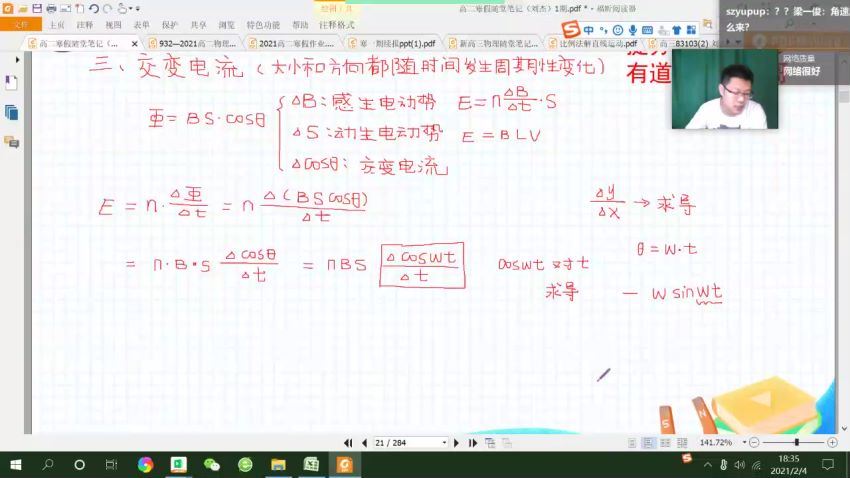 高二寒假随堂笔记（刘杰）1期.pdf * - 福昕阅读器
szyupup：？？梁一俊：角速
么来？
文件 主页 注释 视图 表单 保护 共享 浏览 特色功能 帮助 注释格式
高二寒假随堂笔记（... 932—2021高二物理... 2021高二寒假作业... 寒一期接拔ppt(1).pdf 新高三物理随堂笔记... 比例法解直线运动.pdf 高二83103(2) 刘
网络质量
网络很好
三、交变电流（大小和方向都随时间发生周期性变化）
有道
Φ = BS·cosθ
ΔB：感生电动势 E = n ΔB/Δt ·S
ΔS：动生电动势 E = BLV
Δcosθ：交变电流
E = n· ΔΦ/Δt = n Δ(BScosθ)/Δt
Δy/Δx → 求导
= n·B·S Δcosθ/Δt = nBS Δcoswt/Δt
θ = w·t
coswt 对 t
求导 — w sinwt
21 / 284
141.72%
18:35
2021/2/4